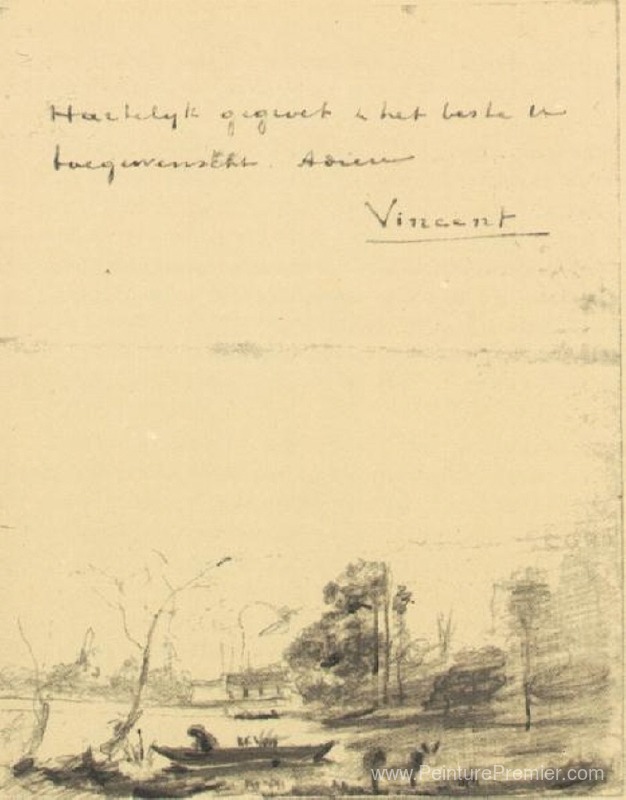 Hartelijk gegroet & het beste U
toegewenscht. Adieu
Vincent
www.PeinturePremier.com